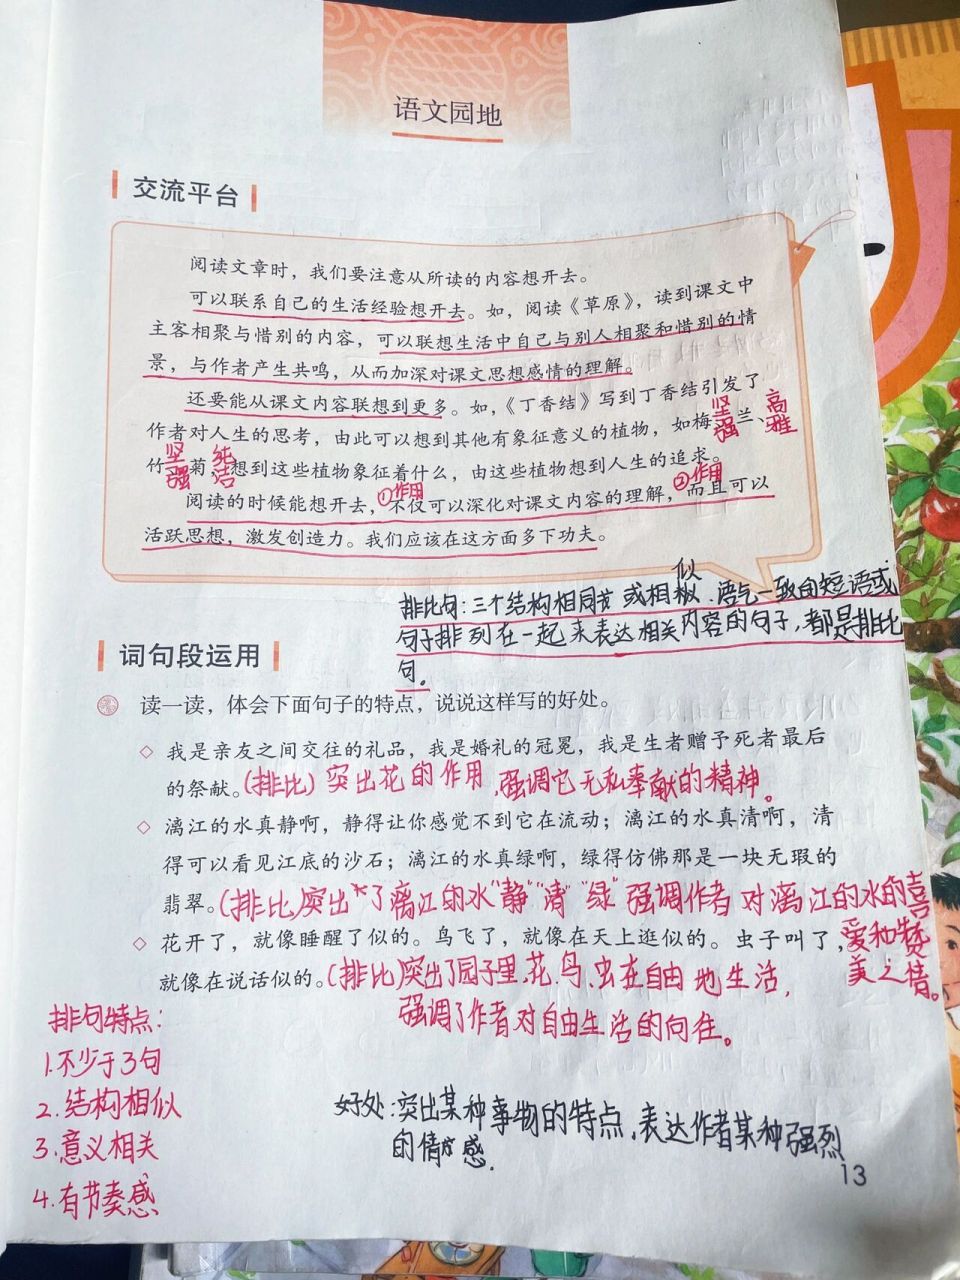 语文园地
交流平台
阅读文章时，我们要注意从所读的内容想开去。
可以联系自己的生活经验想开去。如，阅读《草原》，读到课文中
主客相聚与惜别的内容，可以联想生活中自己与别人相聚和惜别的情
景，与作者产生共鸣，从而加深对课文思想感情的理解。
还要能从课文内容联想到更多。如，《丁香结》写到丁香结引发了
作者对人生的思考，由此可以想到其他有象征意义的植物，如梅、兰、
坚强
高雅
竹、菊，想到这些植物象征着什么，由这些植物想到人生的追求。
坚强
纯洁
①作用
②作用
阅读的时候能想开去，不仅可以深化对课文内容的理解，而且可以
活跃思想，激发创造力。我们应该在这方面多下功夫。
似
排比句：三个结构相同或相、语气一致的短语或
句子排列在一起来表达相关内容的句子，都是排比
句。
词句段运用
读一读，体会下面句子的特点，说说这样写的好处。
◇ 我是亲友之间交往的礼品，我是婚礼的冠冕，我是生者赠予死者最后
的祭献。(排比) 突出花的作用，强调它无私奉献的精神。
◇ 漓江的水真静啊，静得让你感觉不到它在流动；漓江的水真清啊，清
得可以看见江底的沙石；漓江的水真绿啊，绿得仿佛那是一块无瑕的
翡翠。(排比)突出了漓江的水"静""清""绿"强调作者对漓江的水的喜
爱和赞
美之情。
◇ 花开了，就像睡醒了似的。鸟飞了，就像在天上逛似的。虫子叫了，
就像在说话似的。(排比)突出了园子里花、鸟、虫在自由地生活，
强调了作者对自由生活的向往。
排句特点：
1.不少于3句
2.结构相似
3.意义相关
4.有节奏感
好处：突出某种事物的特点，表达作者某种强烈
的情感。
13